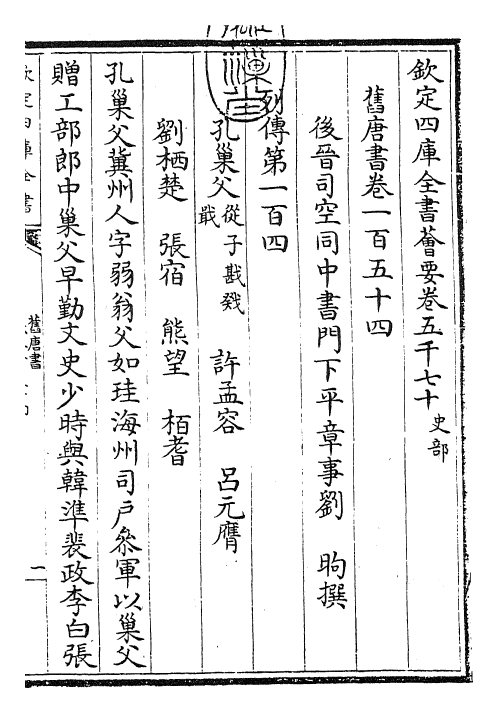 欽定四庫全書薈要卷五千七十 史部
舊唐書卷一百五十四
後晉司空同中書門下平章事劉 昫撰
列傳第一百四
孔巢父 從子戡 戣 戢 許孟容 呂元膺
劉栖楚 張宿 熊望 栢耆
孔巢父冀州人字弱翁父如珪海州司戶叅軍以巢父
贈工部郎中巢父早勤文史少時與韓準裴政李白張
欽定四庫全書
舊唐書